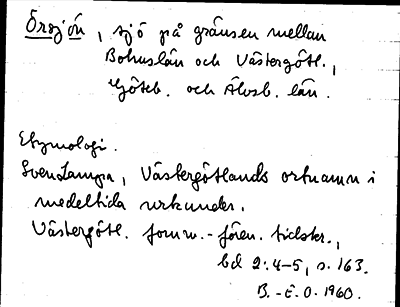 Örsjön, sjö på gränsen mellan
Bohuslän och Västergötl.,
Göteb. och Älvsb. län.
Etymologi.
Sven Lampa, Västergötlands ortnamn i
medeltida urkunder.
Västergötl. fornm.-fören. tidskr.,
bd 2:4-5, s. 163.
B.-E.O. 1960.